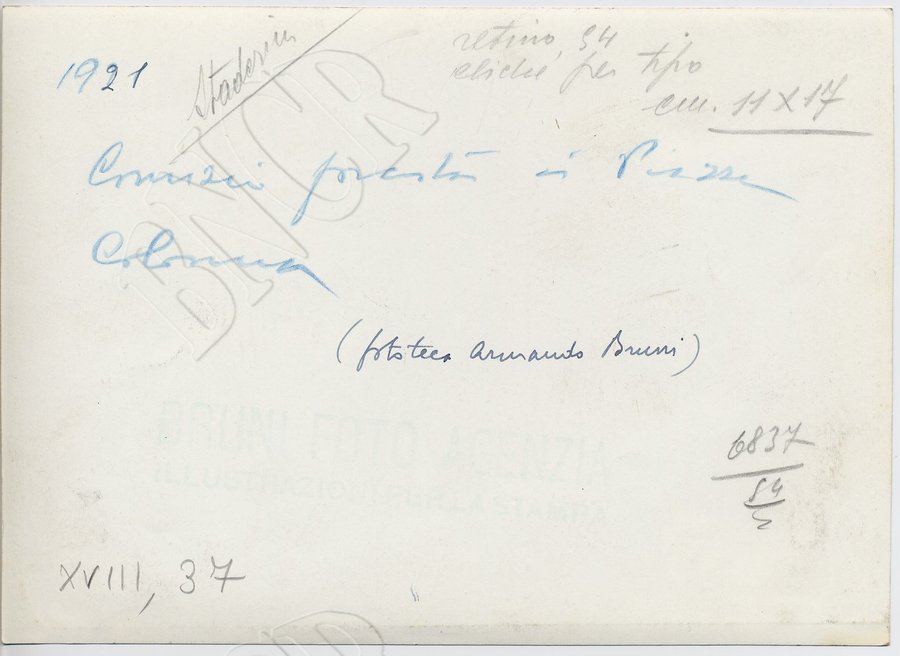 1921
Staderini
retino 54
cliché per tipo
cm. 11 X 17
Comizio fascista in Piazza
Colonna
(fototeca Armando Bruni)
BRUNI FOTO AGENZIA
6837
XVIII, 37
BNCR